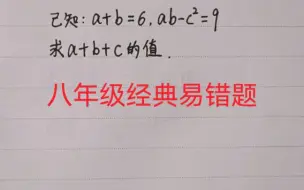 已知:a+b=6,ab-c²=9
求a+b+c的值.
八年级经典易错题